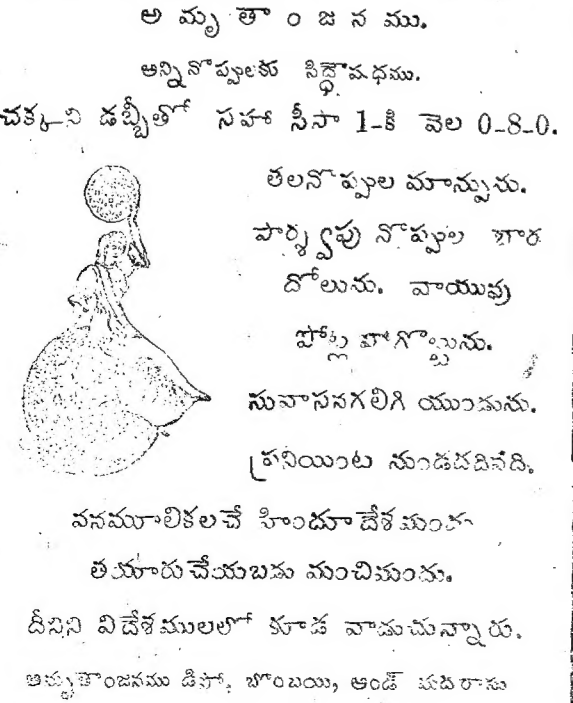 అ మృ తా ం జ న ము.
అన్నినొప్పులకు సిద్ధౌషధము.
చక్కని డబ్బీతో సహా సీసా 1-కి వెల 0-8-0.
తలనొప్పుల మాన్పును.
పార్శ్వపు నొప్పుల పార
దోలును. వాయువు
పోట్ల పోగొట్టును.
సువాసనగలిగి యుండును.
ప్రతియింట నుండదగినది.
వనమూలికలచే హిందూదేశమందు
తయారుచేయబడు మంచిమందు.
దీనిని విదేశములలో కూడ వాడుచున్నారు.
అమృతాంజనము డిపో, బొంబయి, అండ్ మదరాసు